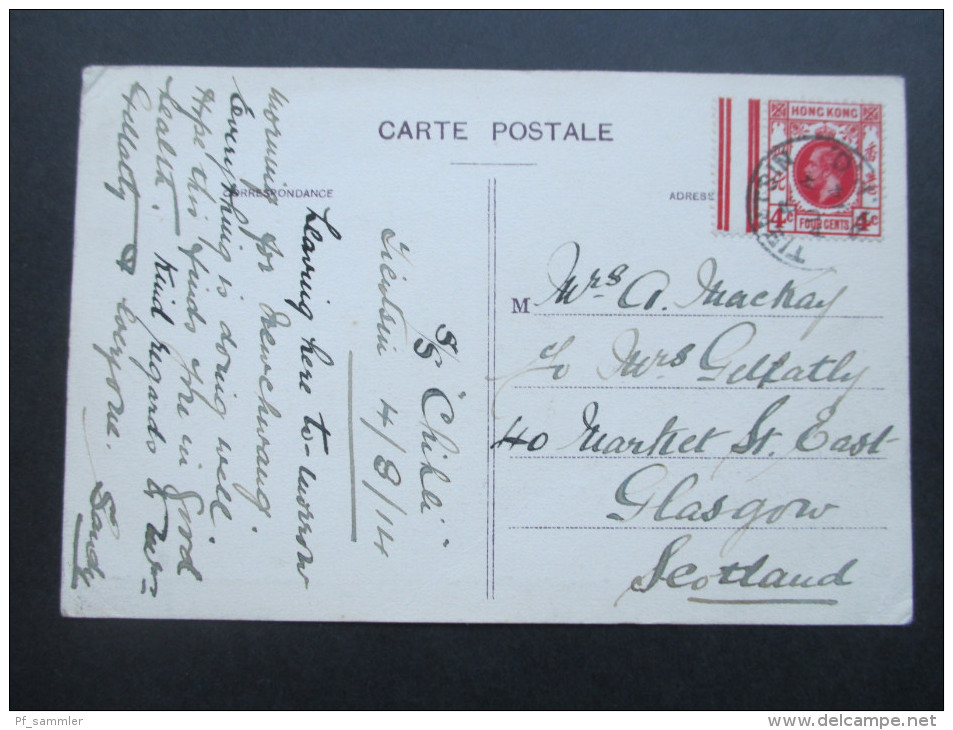 CARTE POSTALE
CORRESPONDANCE
ADRESSE
HONG KONG
4c 4c
FOUR CENTS
TIENTSIN
S/S "Chihli"
Tientsin 4/3/14
Leaving here to-morrow
morning for Newchwang.
Everything is doing well.
Hope this finds you in good
health. Kind regards to Mrs
Gellatly & everyone.
Sandy
M Mrs A. Mackay
c/o Mrs Gellatly
40 Market St. East
Glasgow
Scotland
Pf_sammler
www.delcampe.net